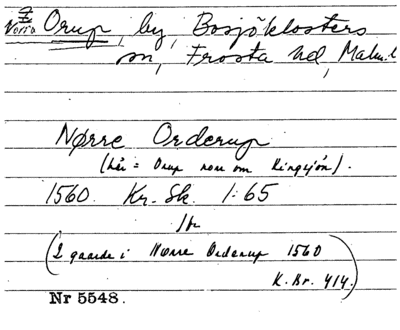 Norra Orup, by, Bosjöklosters
sn, Frosta hd, Malm. l
Nørre Orderup
(här = Orup norr om Ringsjön).
1560. Kr. Sk. 1:65
(2 gaarde i Nørre Orderup 1560
K. Br. 414.)
Nr 5548.